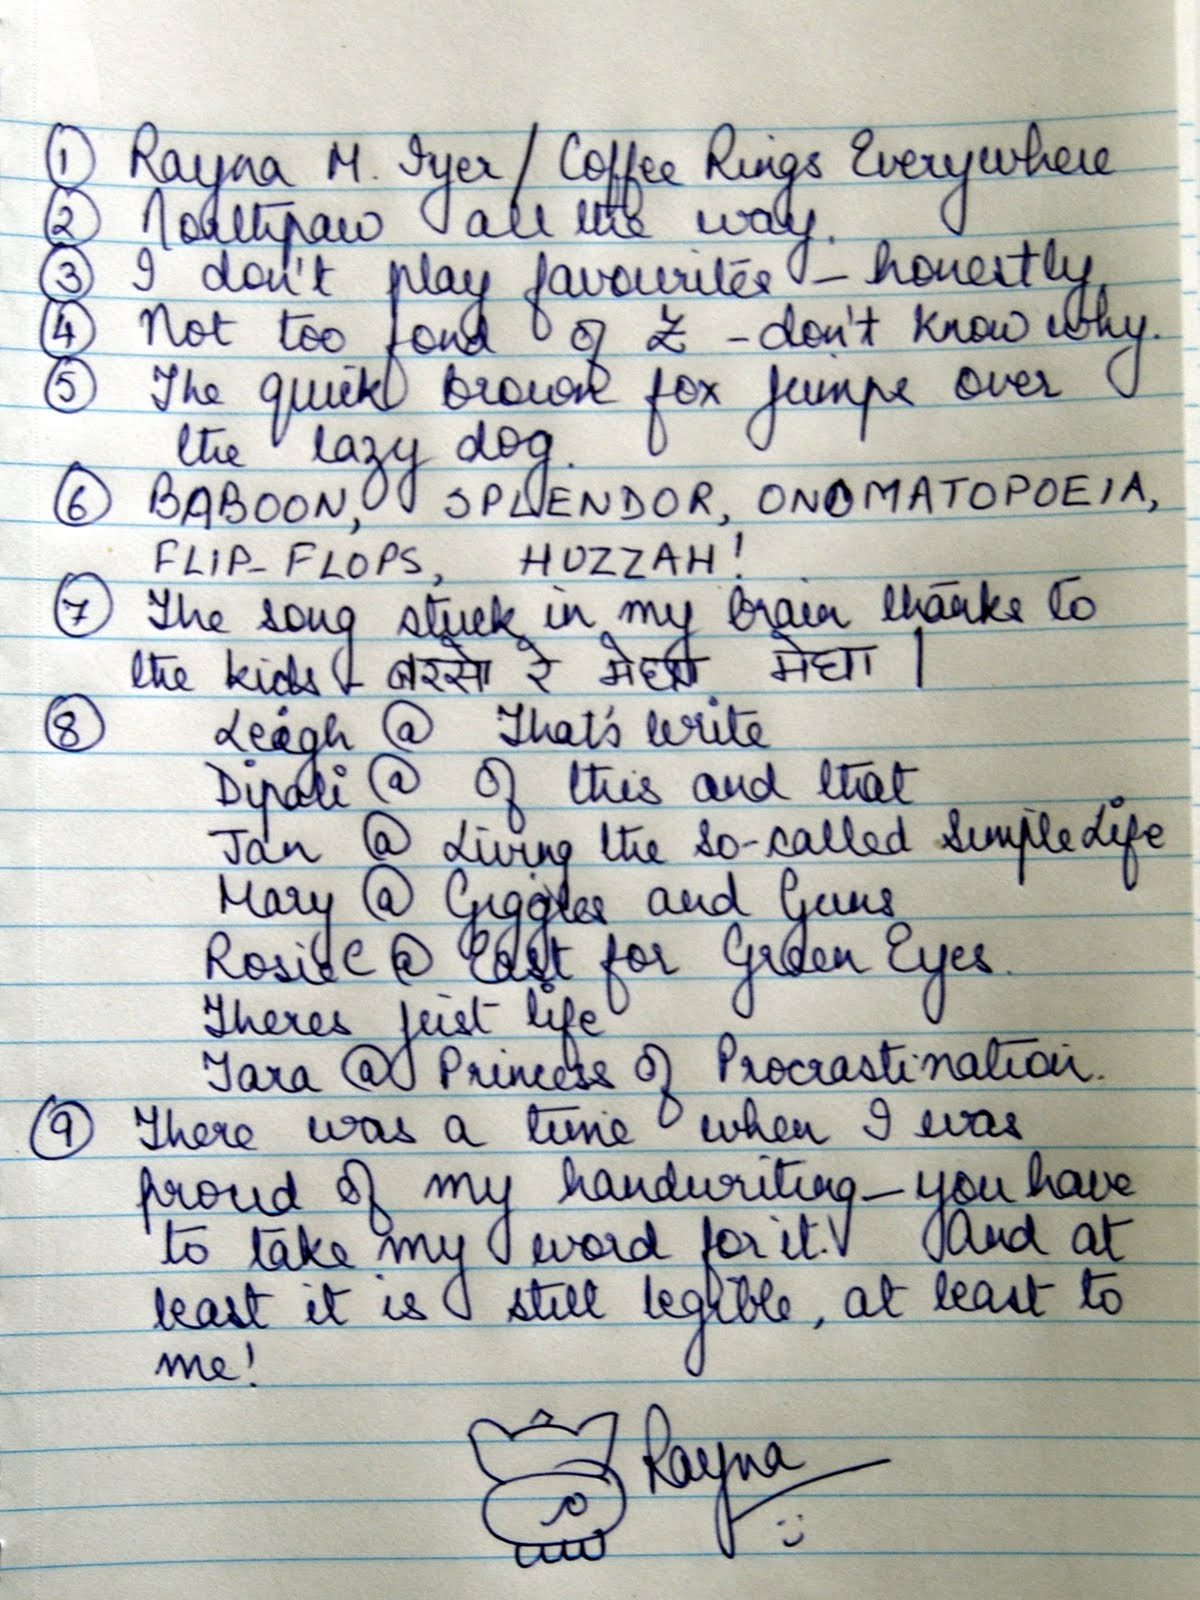 ① Rayna M. Iyer / Coffee Rings Everywhere
② Northpaw all the way.
③ I don't play favourites – honestly.
④ Not too fond of Z – don't know why.
⑤ The quick brown fox jumps over
the lazy dog.
⑥ BABOON, SPLENDOR, ONOMATOPOEIA,
FLIP-FLOPS, HUZZAH!
⑦ The song stuck in my brain thanks to
the kids – बरसो रे मेघा मेघा |
⑧ Leigh @ That's Write
Dipali @ Of this and that
Jan @ Living the so-called Simple Life
Mary @ Giggles and Guns
RosieC @ East for Green Eyes.
Theres just life
Tara @ Princess of Procrastination.
⑨ There was a time when I was
proud of my handwriting – you have
to take my word for it. And at
least it is still legible, at least to
me!
Rayna